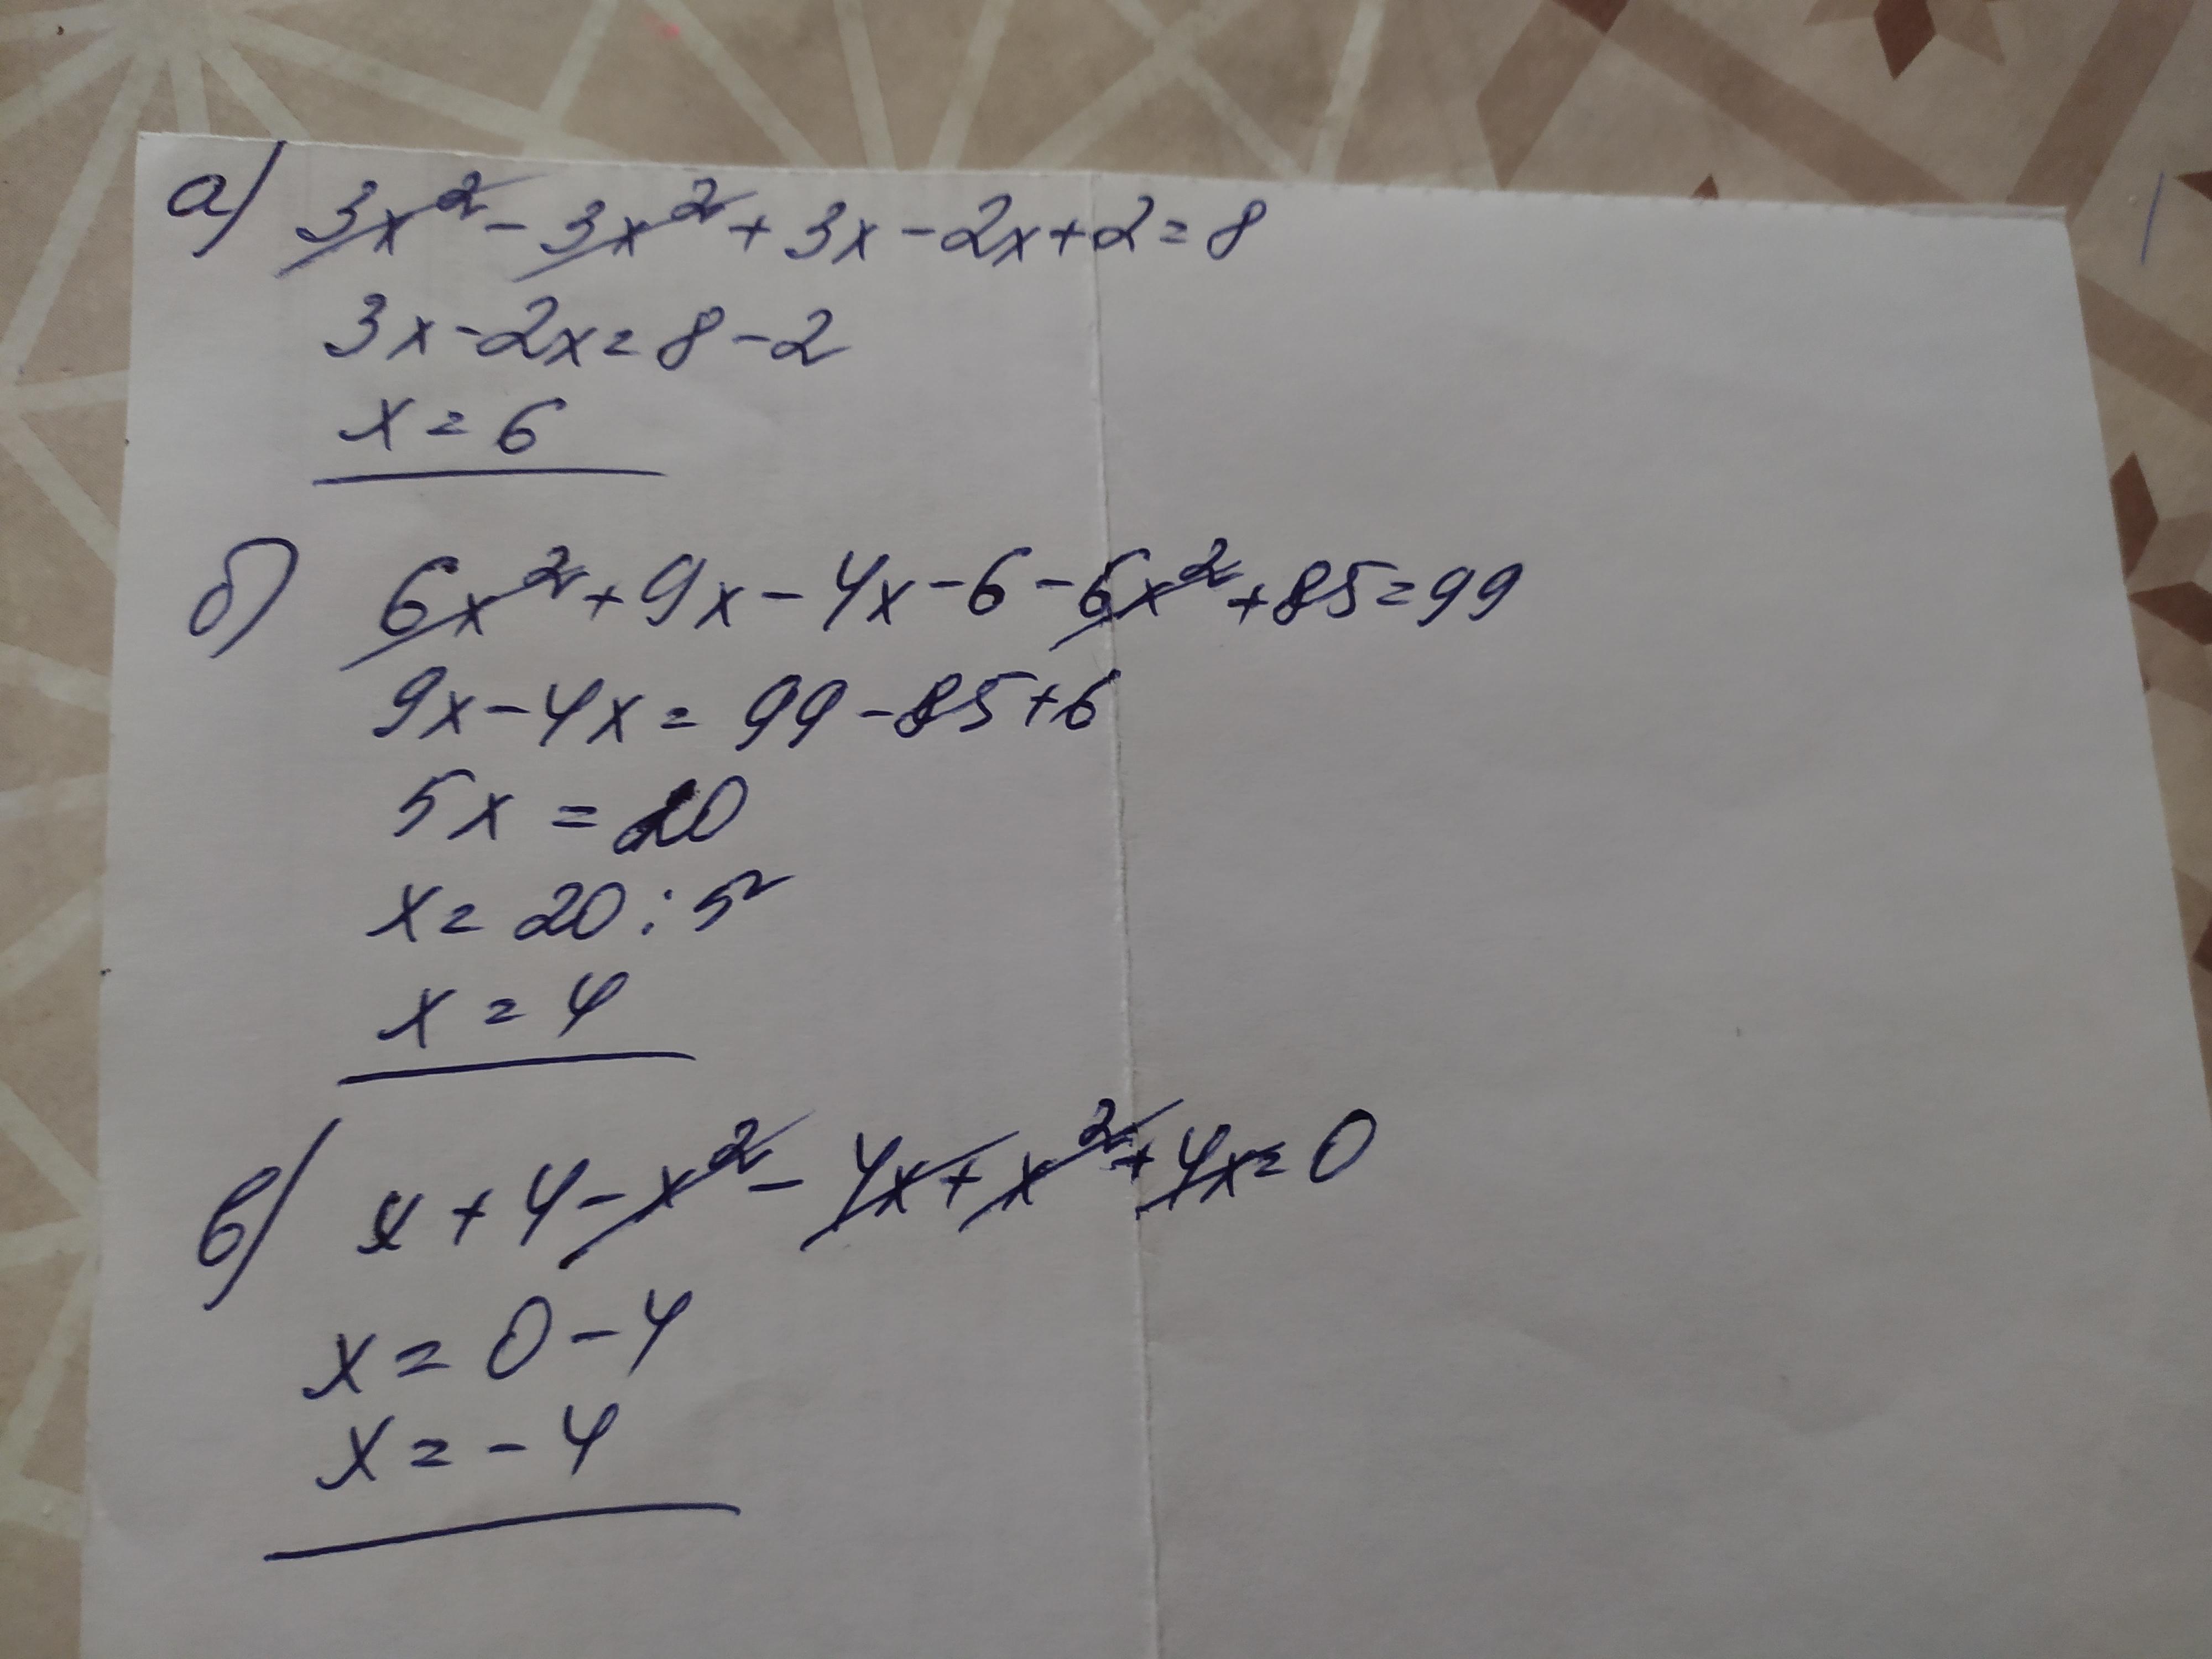 а) 3x² - 3x² + 3x - 2x + 2 = 8
3x - 2x = 8 - 2
x = 6
б) 6x² + 9x - 4x - 6 - 6x² + 85 = 99
9x - 4x = 99 - 85 + 6
5x = 20
x = 20 : 5
x = 4
в) x + 4 - x² - 4x + x² + 4x = 0
x = 0 - 4
x = - 4